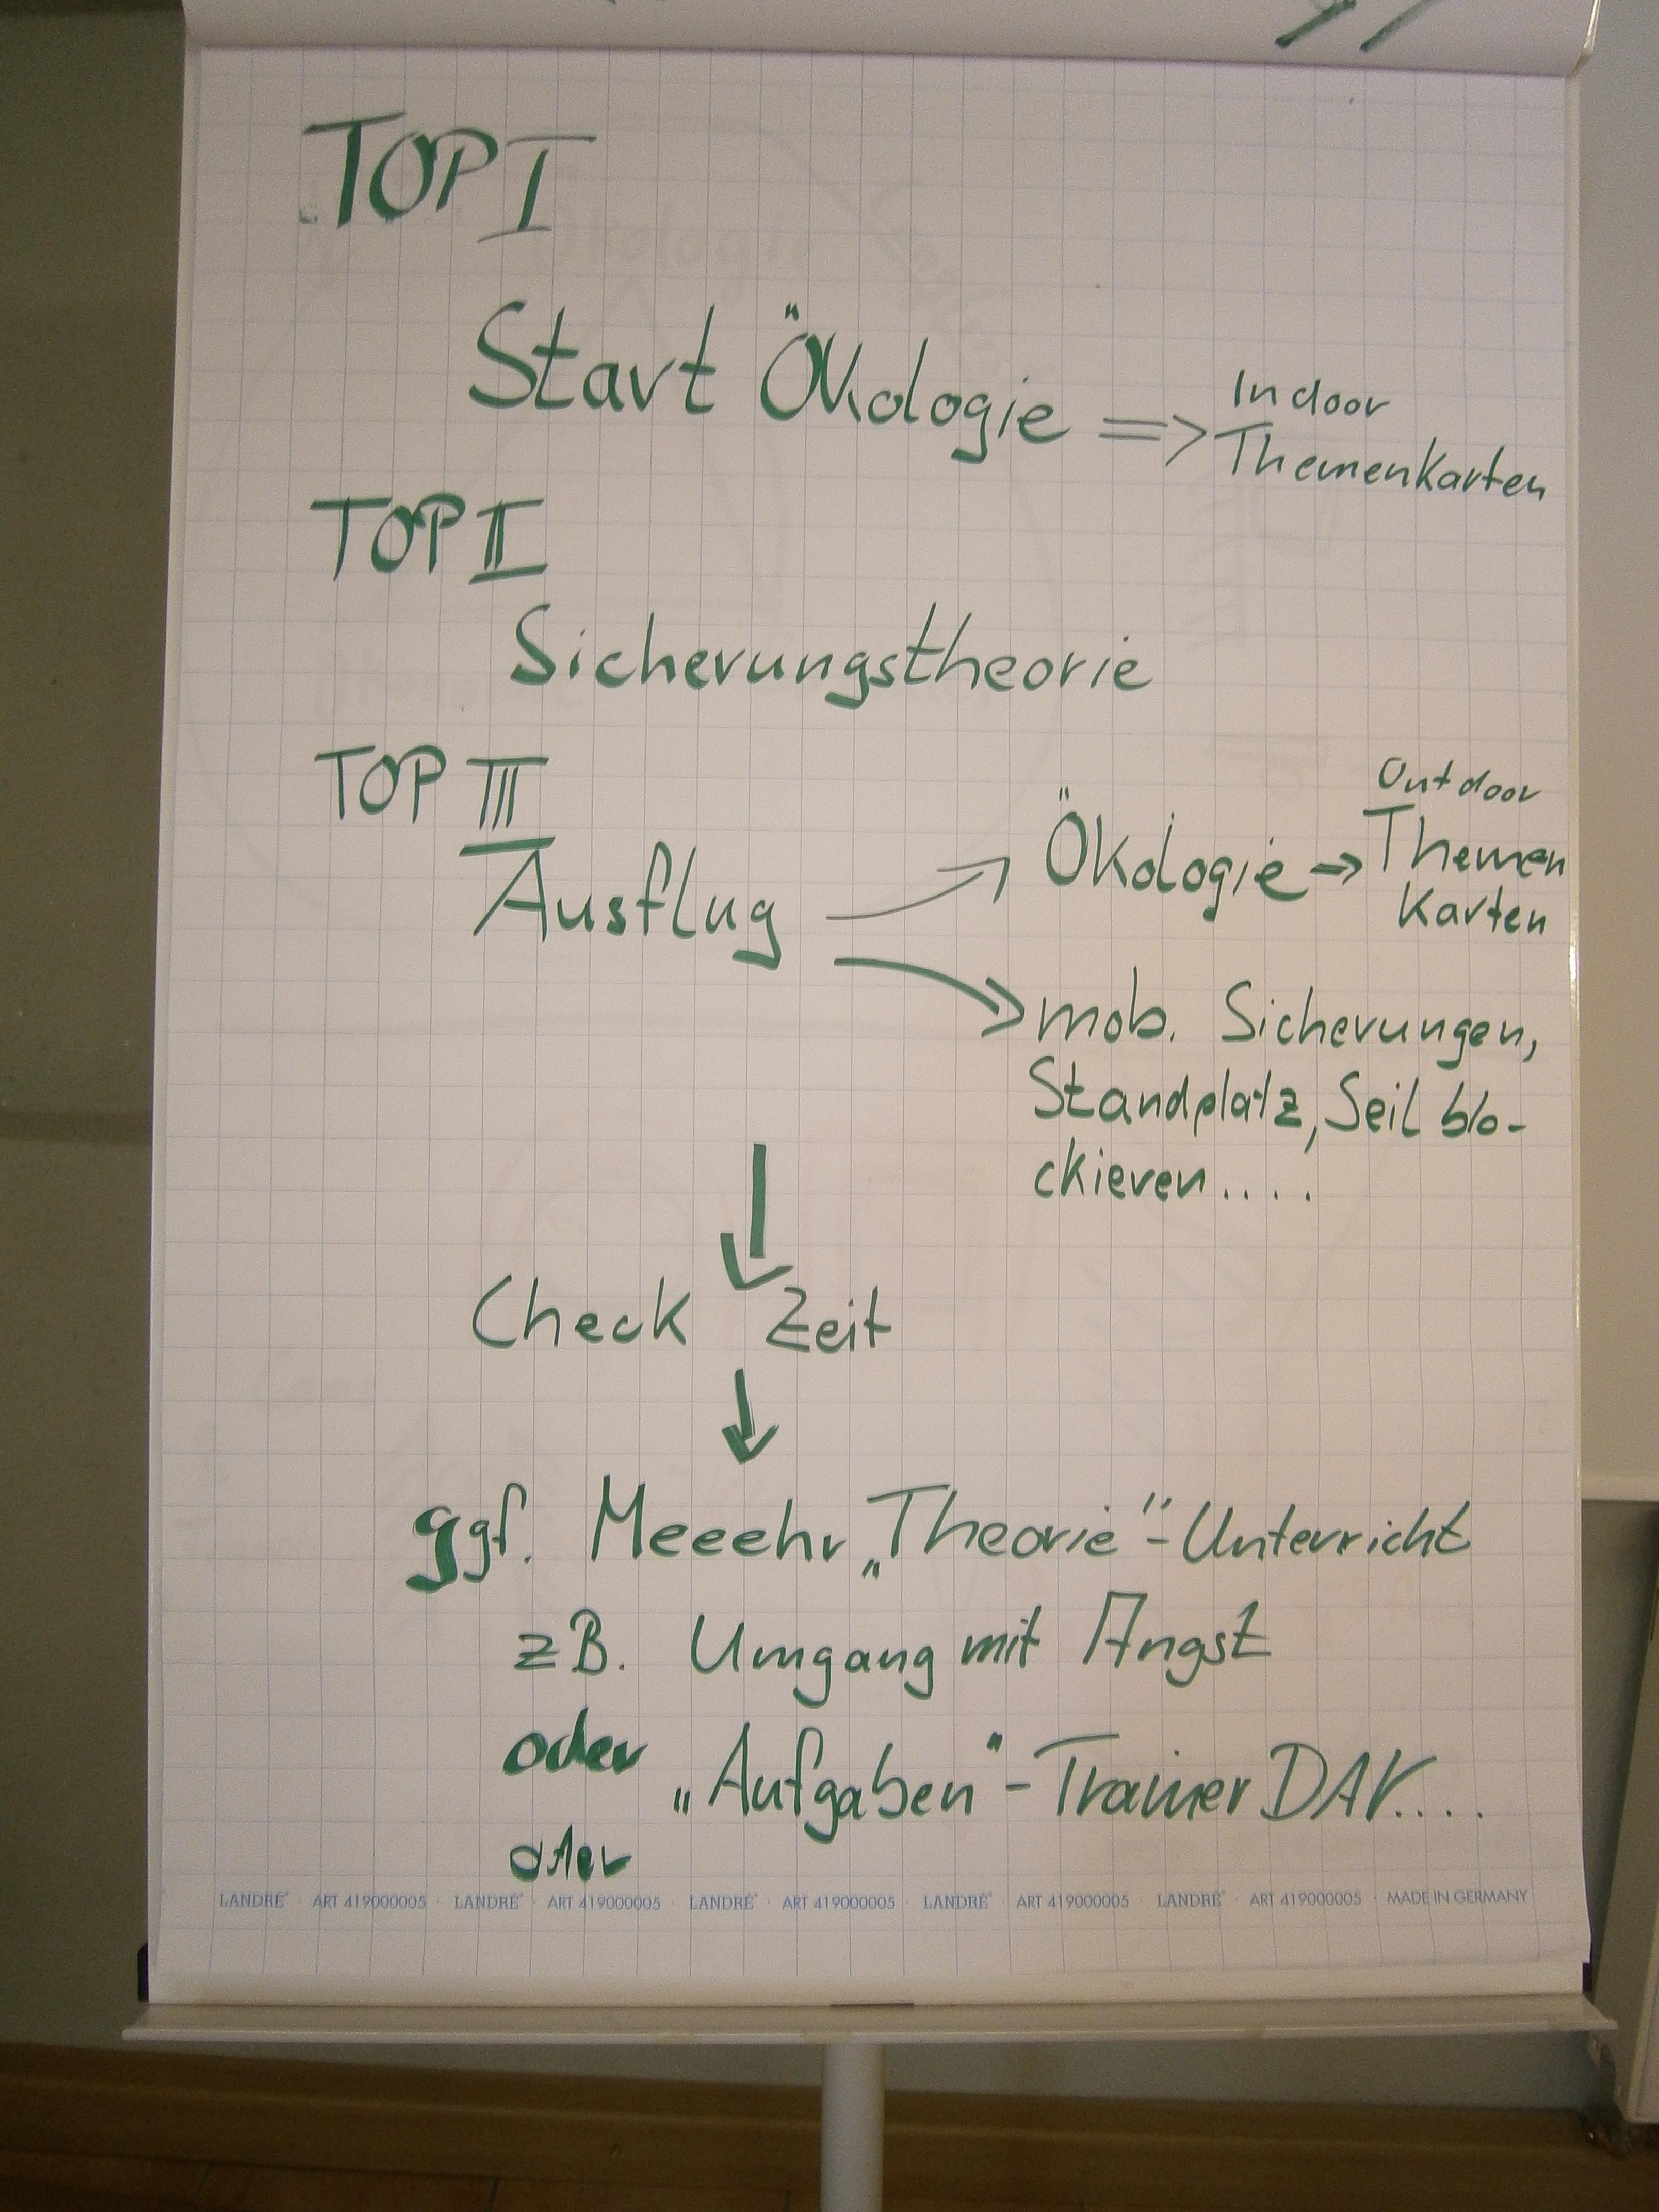 TOP I
Start Ökologie => Indoor
Themenkarten
TOP II
Sicherungstheorie
TOP III
Ausflug
Ökologie → Outdoor
Themen
Karten
mob. Sicherungen,
Standplatz, Seil blo-
ckieren....
Check Zeit
ggf. Meeehr „Theorie"-Unterricht
zB. Umgang mit Angst
oder „Aufgaben"-Trainer DAV....
oder
LANDRÉ® · ART 419000005 · LANDRÉ® · ART 419000005 · LANDRÉ® · ART 419000005 · LANDRÉ® · ART 419000005 · LANDRÉ® · ART 419000005 · MADE IN GERMANY